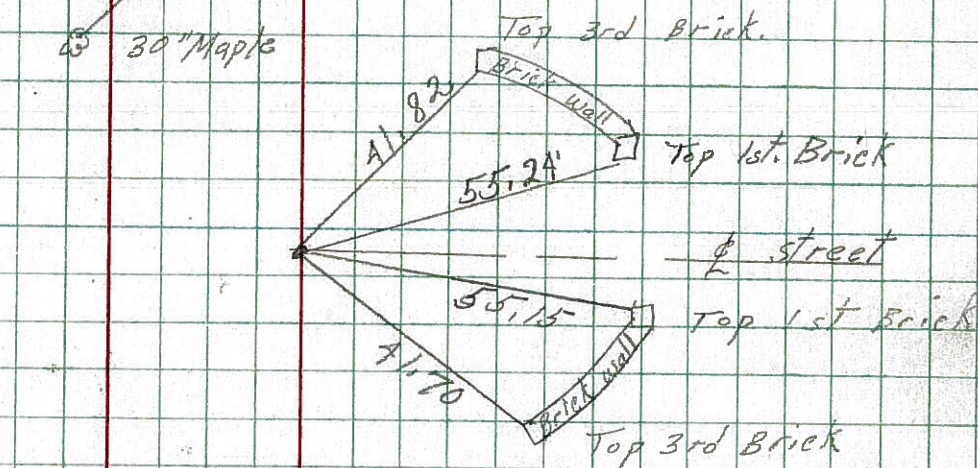 Top 3rd Brick.
30" Maple
Brick Wall
41.82
Top 1st. Brick
55.24'
℄ street
55.15
Top 1st Brick
41.70
Brick wall
Top 3rd Brick